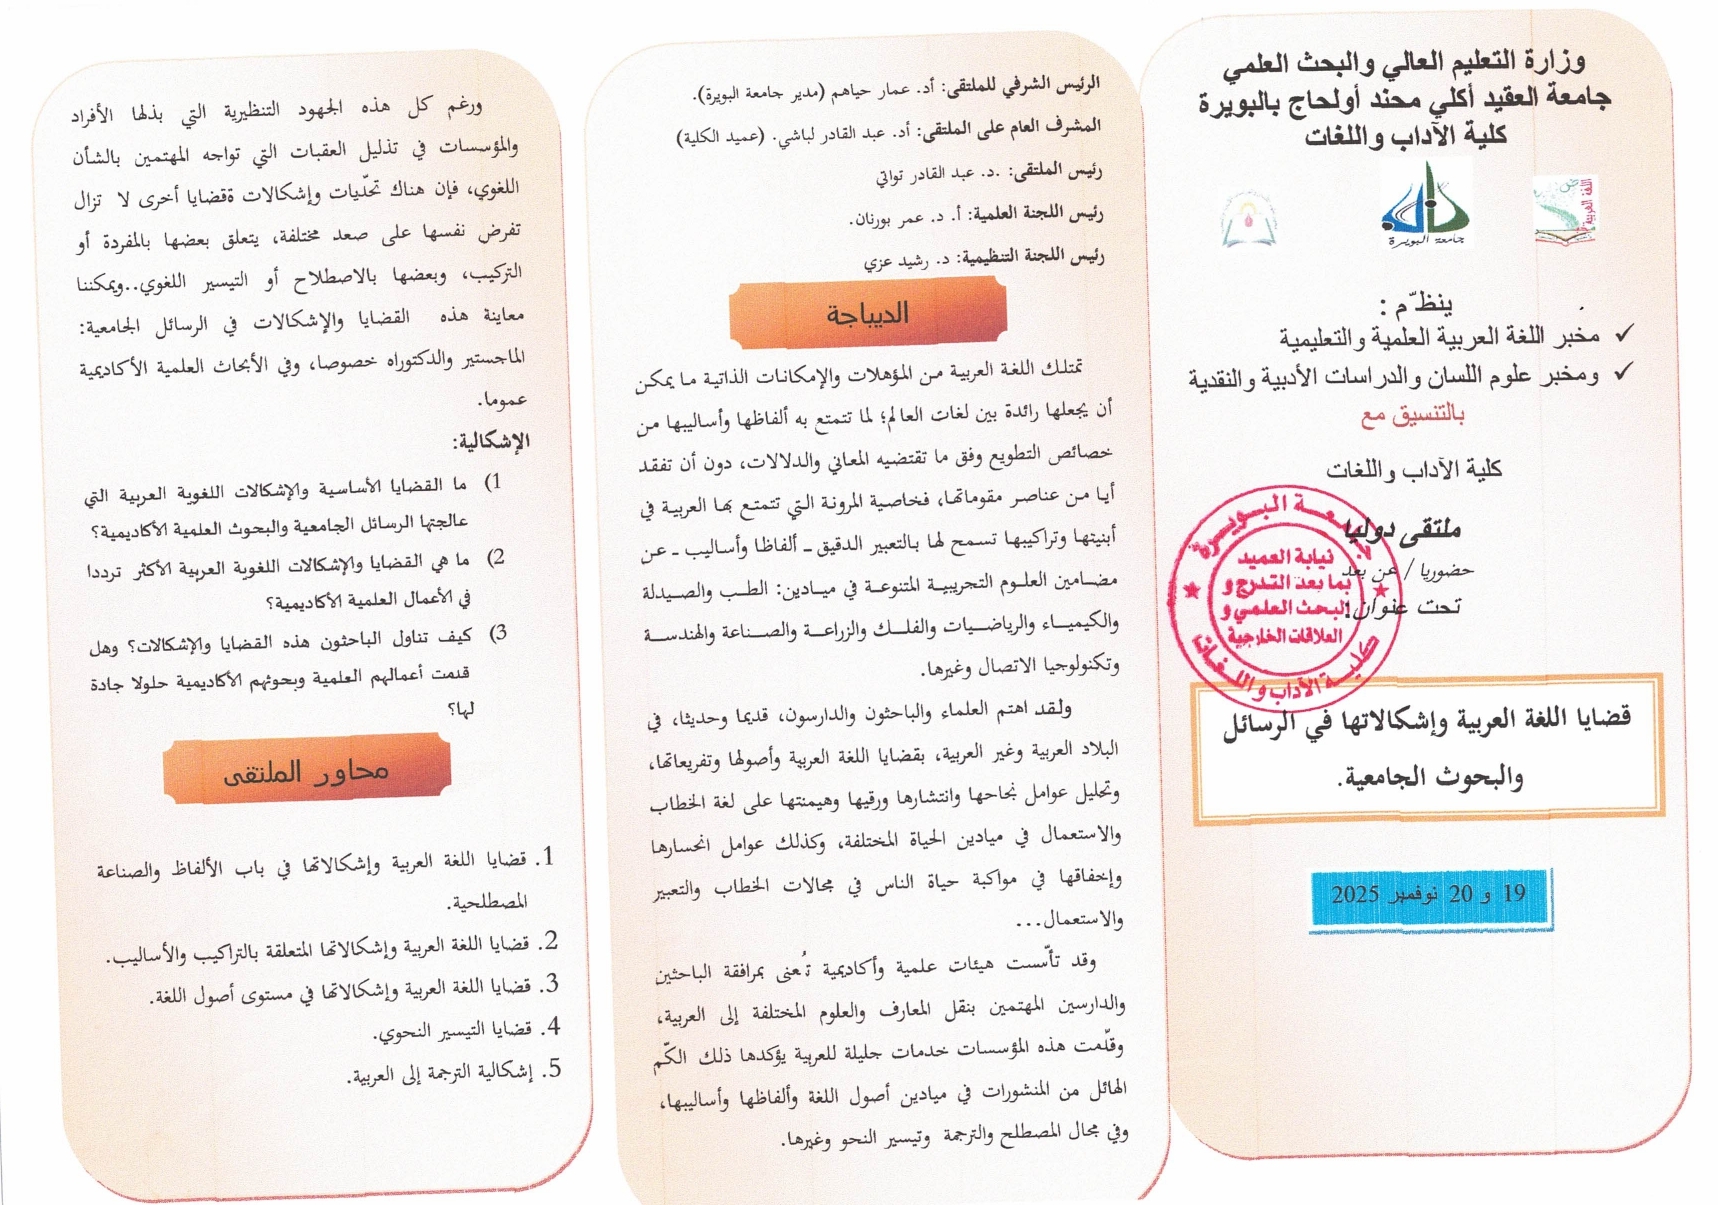 وزارة التعليم العالي والبحث العلمي
جامعة العقيد أكلي محند أولحاج بالبويرة
كلية الآداب واللغات
اللغة العربية
جامعة البويرة
ينظّم :
✓ مخبر اللغة العربية العلمية والتعليمية
✓ ومخبر علوم اللسان والدراسات الأدبية والنقدية
بالتنسيق مع
كلية الآداب واللغات
ملتقى دوليا
حضوريا / عن بعد
تحت عنوان:
جامعة البويرة
نيابة العميد
بما بعد التدرج و
البحث العلمي و
العلاقات الخارجية
كلية الآداب واللغات
قضايا اللغة العربية وإشكالاتها في الرسائل
والبحوث الجامعية.
19 و 20 نوفمبر 2025
الرئيس الشرفي للملتقى: أد. عمار حياهم (مدير جامعة البويرة).
المشرف العام على الملتقى: أد. عبد القادر لباشي. (عميد الكلية)
رئيس الملتقى: .د. عبد القادر تواتي
رئيس اللجنة العلمية: أ. د. عمر بورنان.
رئيس اللجنة التنظيمية: د. رشيد عزي
الديباجة
تمتلك اللغة العربية من المؤهلات والإمكانات الذاتية ما يمكن
أن يجعلها رائدة بين لغات العالم؛ لما تتمتع به ألفاظها وأساليبها من
خصائص التطويع وفق ما تقتضيه المعاني والدلالات، دون أن تفقد
أيا من عناصر مقوماتها، فخاصية المرونة التي تتمتع بها العربية في
أبنيتها وتراكيبها تسمح لها بالتعبير الدقيق ـ ألفاظا وأساليب ـ عن
مضامين العلوم التجريبية المتنوعة في ميادين: الطب والصيدلة
والكيمياء والرياضيات والفلك والزراعة والصناعة والهندسة
وتكنولوجيا الاتصال وغيرها.
ولقد اهتم العلماء والباحثون والدارسون، قديما وحديثا، في
البلاد العربية وغير العربية، بقضايا اللغة العربية وأصولها وتفريعاتها،
وتحليل عوامل نجاحها وانتشارها ورقيها وهيمنتها على لغة الخطاب
والاستعمال في ميادين الحياة المختلفة، وكذلك عوامل انحسارها
وإخفاقها في مواكبة حياة الناس في مجالات الخطاب والتعبير
والاستعمال...
وقد تأسّست هيئات علمية وأكاديمية تُعنى بمرافقة الباحثين
والدارسين المهتمين بنقل المعارف والعلوم المختلفة إلى العربية،
وقدّمت هذه المؤسسات خدمات جليلة للعربية يؤكدها ذلك الكّم
الهائل من المنشورات في ميادين أصول اللغة وألفاظها وأساليبها،
وفي مجال المصطلح والترجمة وتيسير النحو وغيرها.
ورغم كل هذه الجهود التنظيرية التي بذلها الأفراد
والمؤسسات في تذليل العقبات التي تواجه المهتمين بالشأن
اللغوي، فإن هناك تحدّيات وإشكالات ةقضايا أخرى لا تزال
تفرض نفسها على صعد مختلفة، يتعلق بعضها بالمفردة أو
التركيب، وبعضها بالاصطلاح أو التيسير اللغوي..ويمكننا
معاينة هذه القضايا والإشكالات في الرسائل الجامعية:
الماجستير والدكتوراه خصوصا، وفي الأبحاث العلمية الأكاديمية
عموما.
الإشكالية:
1) ما القضايا الأساسية والإشكالات اللغوية العربية التي
عالجتها الرسائل الجامعية والبحوث العلمية الأكاديمية؟
2) ما هي القضايا والإشكالات اللغوية العربية الأكثر ترددا
في الأعمال العلمية الأكاديمية؟
3) كيف تناول الباحثون هذه القضايا والإشكالات؟ وهل
قدمت أعمالهم العلمية وبحوثهم الأكاديمية حلولا جادة
لها؟
محاور الملتقى
1. قضايا اللغة العربية وإشكالاتها في باب الألفاظ والصناعة
المصطلحية.
2. قضايا اللغة العربية وإشكالاتها المتعلقة بالتراكيب والأساليب.
3. قضايا اللغة العربية وإشكالاتها في مستوى أصول اللغة.
4. قضايا التيسير النحوي.
5. إشكالية الترجمة إلى العربية.